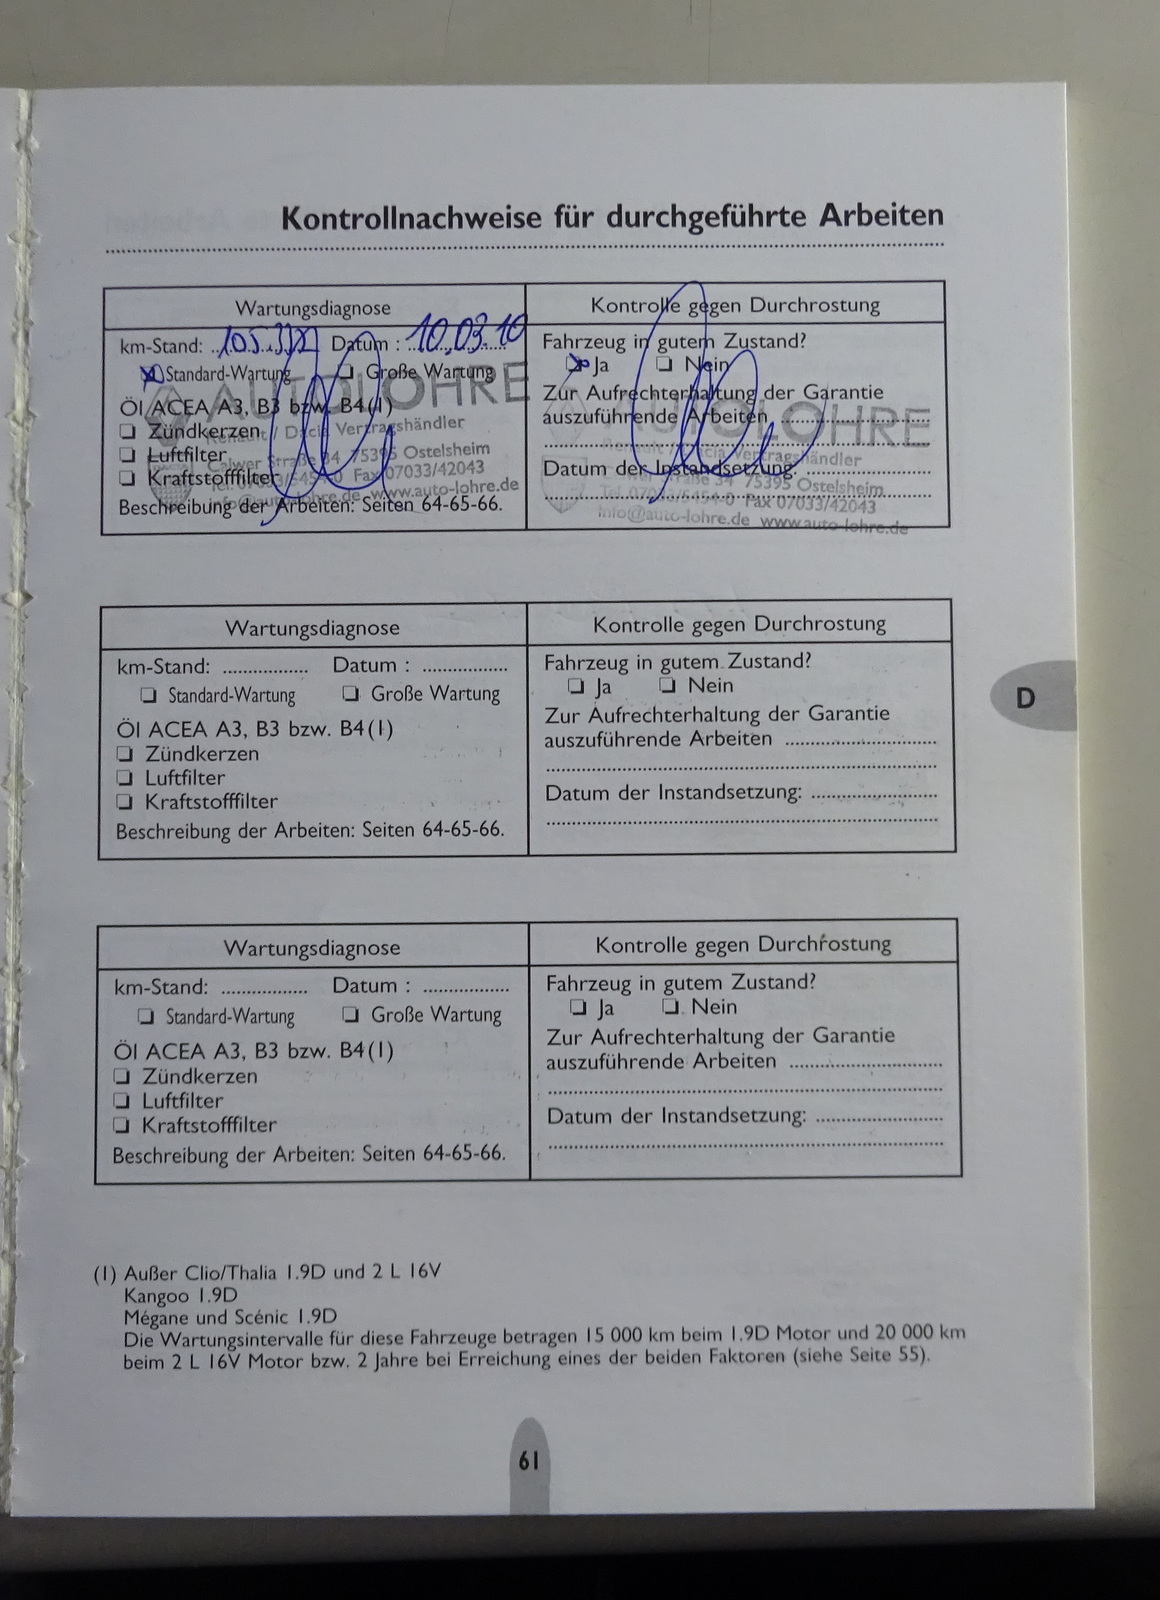 Kontrollnachweise für durchgeführte Arbeiten
Wartungsdiagnose
km-Stand: Datum : 10.03.10
Standard-Wartung Große Wartung
Öl ACEA A3, B3 bzw. B4(1)
Zündkerzen
Luftfilter
Kraftstofffilter
Beschreibung der Arbeiten: Seiten 64-65-66.
AUTOLOHRE
Renault / Dacia Vertragshändler
Calwer Straße 34 75395 Ostelsheim
Tel. 07033/5454-0 Fax 07033/42043
info@auto-lohre.de www.auto-lohre.de
Kontrolle gegen Durchrostung
Fahrzeug in gutem Zustand?
Ja Nein
Zur Aufrechterhaltung der Garantie
auszuführende Arbeiten
Datum der Instandsetzung:
AUTOLOHRE
Renault / Dacia Vertragshändler
Calwer Straße 34 75395 Ostelsheim
Tel. 07033/5454-0 Fax 07033/42043
info@auto-lohre.de www.auto-lohre.de
Wartungsdiagnose
km-Stand: Datum :
Standard-Wartung Große Wartung
Öl ACEA A3, B3 bzw. B4(1)
Zündkerzen
Luftfilter
Kraftstofffilter
Beschreibung der Arbeiten: Seiten 64-65-66.
Kontrolle gegen Durchrostung
Fahrzeug in gutem Zustand?
Ja Nein
Zur Aufrechterhaltung der Garantie
auszuführende Arbeiten
Datum der Instandsetzung:
D
Wartungsdiagnose
km-Stand: Datum :
Standard-Wartung Große Wartung
Öl ACEA A3, B3 bzw. B4(1)
Zündkerzen
Luftfilter
Kraftstofffilter
Beschreibung der Arbeiten: Seiten 64-65-66.
Kontrolle gegen Durchrostung
Fahrzeug in gutem Zustand?
Ja Nein
Zur Aufrechterhaltung der Garantie
auszuführende Arbeiten
Datum der Instandsetzung:
(1) Außer Clio/Thalia 1.9D und 2 L 16V
Kangoo 1.9D
Mégane und Scénic 1.9D
Die Wartungsintervalle für diese Fahrzeuge betragen 15 000 km beim 1.9D Motor und 20 000 km
beim 2 L 16V Motor bzw. 2 Jahre bei Erreichung eines der beiden Faktoren (siehe Seite 55).
61